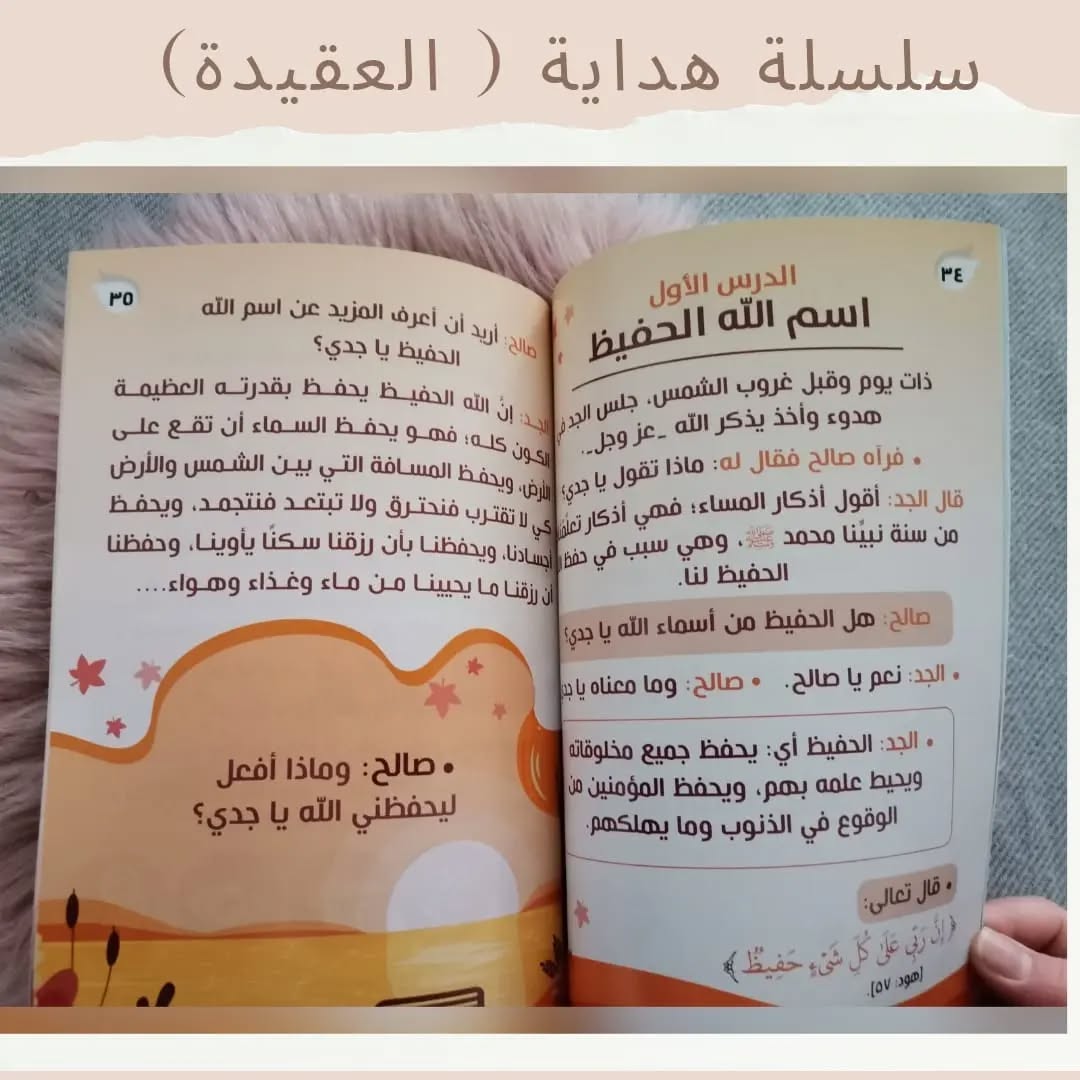 سلسلة هداية ( العقيدة)
٣٤
الدرس الأول
اسم الله الحفيظ
ذات يوم وقبل غروب الشمس، جلس الجد في
هدوء وأخذ يذكر الله _عز وجل_.
• فرآه صالح فقال له: ماذا تقول يا جدي؟
قال الجد: أقول أذكار المساء؛ فهي أذكار
من سنة نبيِّنا محمد ﷺ، وهي سبب في حفظ
الحفيظ لنا.
صالح: هل الحفيظ من أسماء الله يا جدي؟
• الجد: نعم يا صالح. • صالح: وما معناه يا
• الجد: الحفيظ أي: يحفظ جميع مخلوقاته
ويحيط علمه بهم، ويحفظ المؤمنين من
الوقوع في الذنوب وما يهلكهم.
• قال تعالى:
﴿إِنَّ رَبِّي عَلَىٰ كُلِّ شَيْءٍ حَفِيظٌ﴾
[هود: ٥٧].
٣٥
صالح: أريد أن أعرف المزيد عن اسم الله
الحفيظ يا جدي؟
الجد: إنَّ الله الحفيظ يحفظ بقدرته العظيمة
الكون كله؛ فهو يحفظ السماء أن تقع على
الأرض، ويحفظ المسافة التي بين الشمس والأرض
كي لا تقترب فنحترق ولا تبتعد فنتجمد، ويحفظ
أجسادنا، ويحفظنا بأن رزقنا سكنًا يأوينا، وحفظنا
أن رزقنا ما يحيينا من ماء وغذاء وهواء....
• صالح: وماذا أفعل
ليحفظني الله يا جدي؟